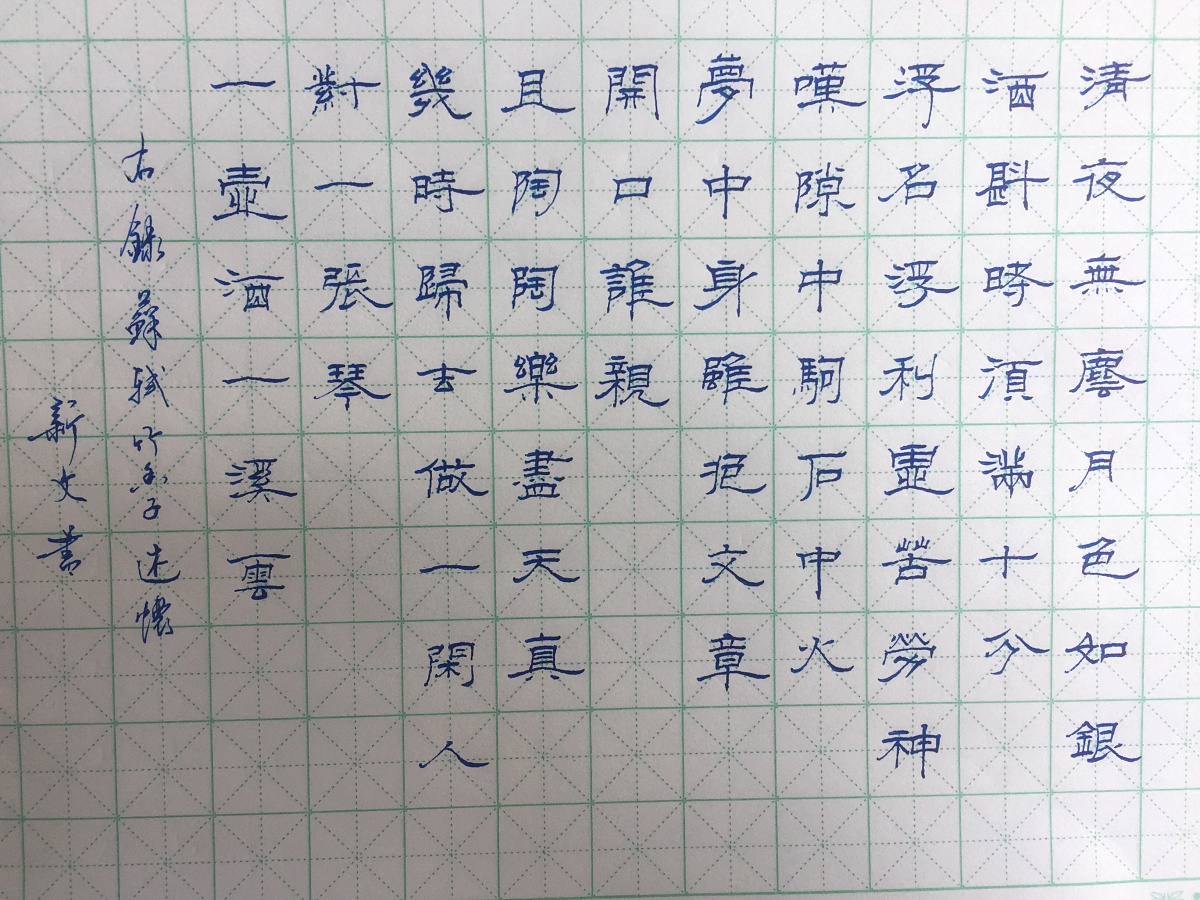 清夜無塵月色如銀
酒斟時須滿十分
浮名浮利虛苦勞神
嘆隙中駒石中火
夢中身雖抱文章
開口誰親
且陶陶樂盡天真
幾時歸去做一閑人
對一張琴
一壺酒一溪雲
右錄蘇軾行香子述懷
新文書